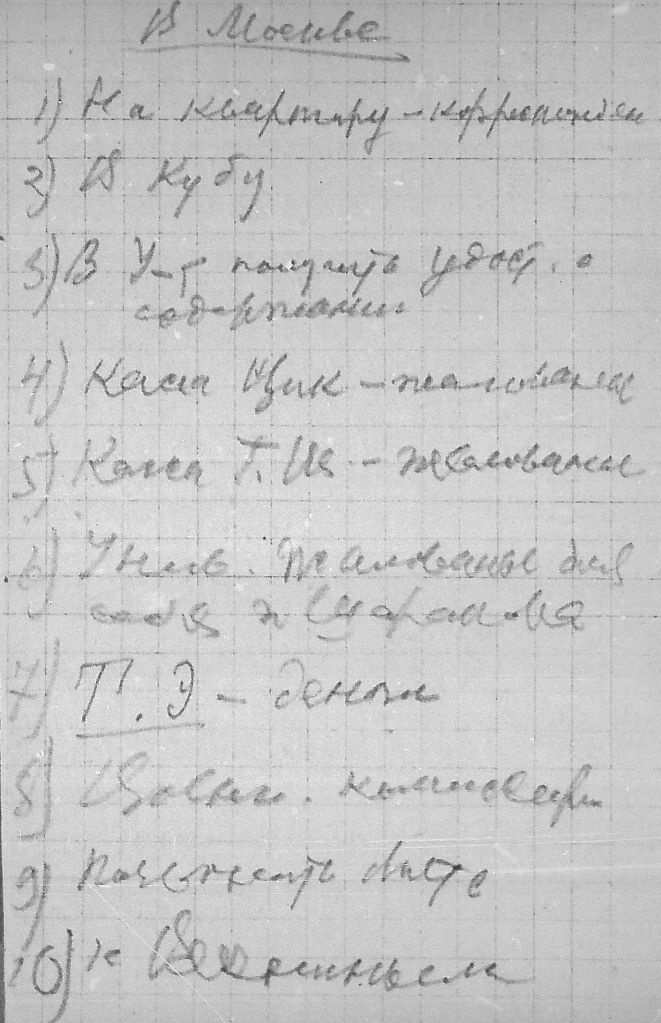 В Москве
1) На квартиру – корреспонден
2) В Кубу
3) В У-т получить удост. о
содержании
4) Касса Цик – жалованье
5) Касса Т. Из – жалованье
6) Унив. Жалованье для
себя и Шарапова
7) Т. Э – деньги
8) комиссар.
9)
10) К